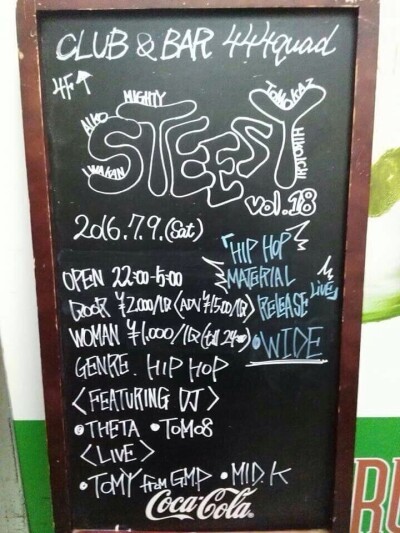 CLUB & BAR 444quad
4F↑
MIGHTY
TOMOKAZ
AIKO
STEESY
HIROICHI
UWAKAN
vol.18
2016.7.9.(Sat)
「HIP HOP
MATERIAL
RELEASE LIVE」
•WIDE
OPEN 22:00-5:00
DOOR ¥2,000/1D(ADV ¥1,500/1D)
WOMAN ¥1,000/1D(till 24:00)
GENRE. HIP HOP
<FEATURING DJ>
•THETA •TOMO8
<LIVE>
•TOMY from G.M.P •MID.K
Coca-Cola®